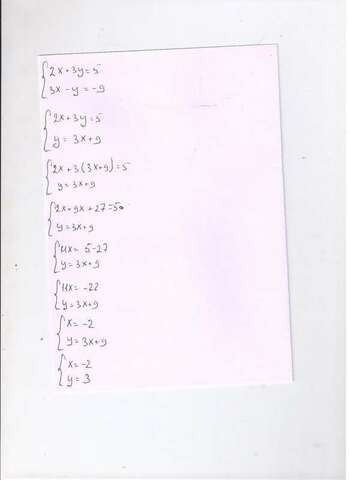 2x+3y=5
3x-y=-9
2x+3y=5
y=3x+9
2x+3(3x+9)=5
y=3x+9
2x+9x+27=5
y=3x+9
11x=5-27
y=3x+9
11x=-22
y=3x+9
x=-2
y=3x+9
x=-2
y=3